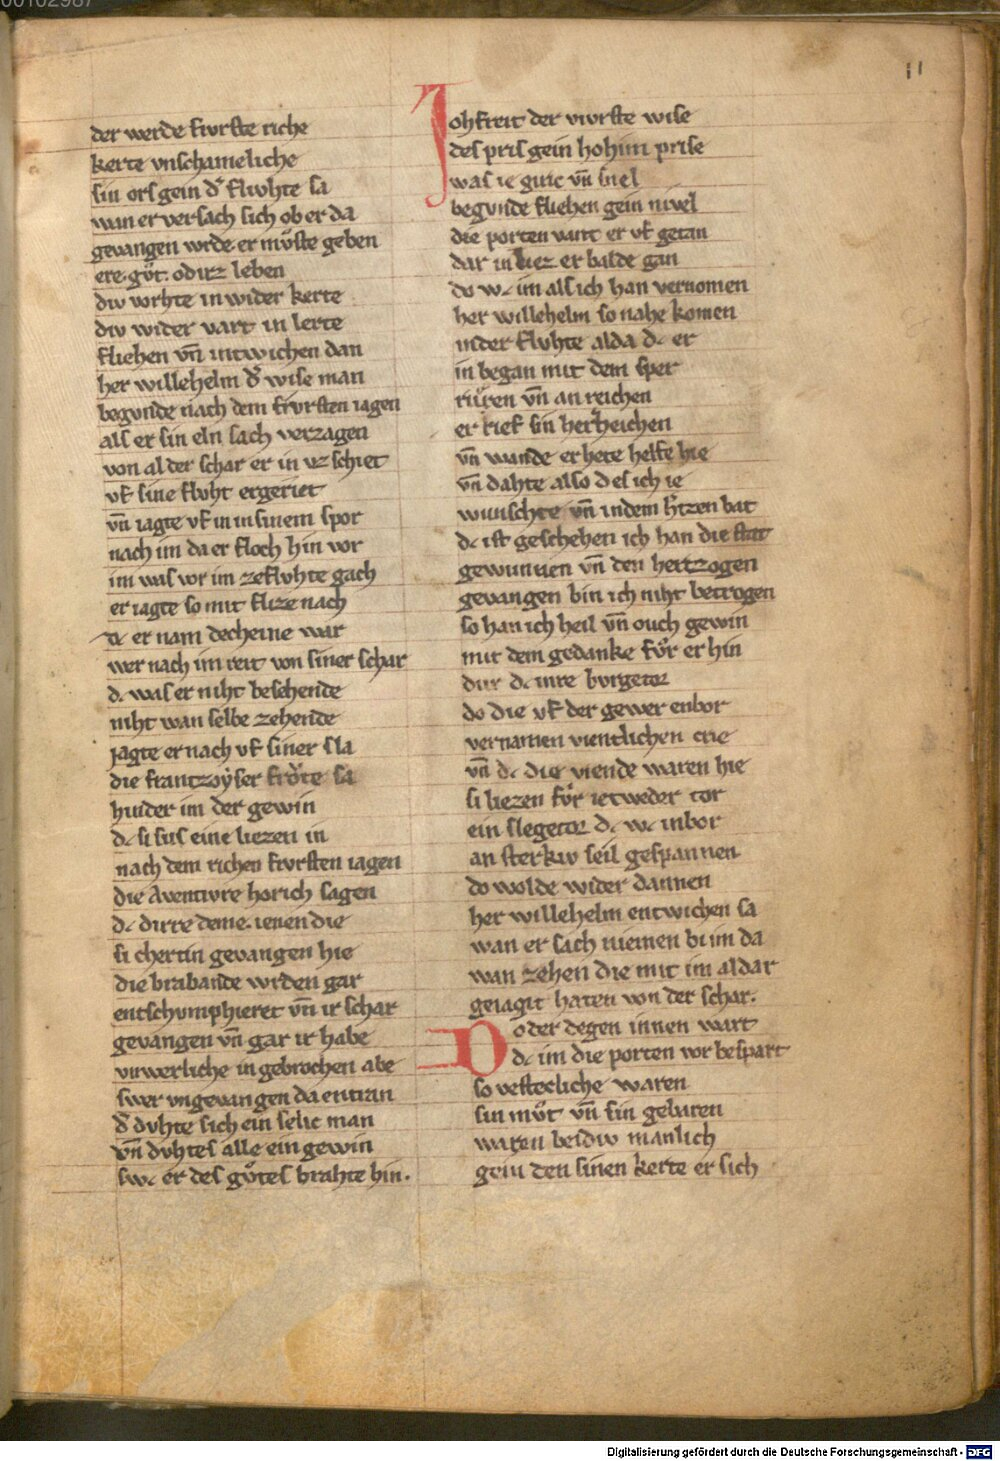 00102987
11
der werde fivrste riche
kerte vnschameliche
sin ors gein d͛ flvhte sa
wan er versach sich ob er da
gevangen wrde er mvͤste geben
ere. gvͦt. od irz leben
div vorhte in wider kerte
div wider vart in lerte
fliehen vn̄ intwichen dan
her willehelm d͛ wise man
begvnde nach dem fivrsten iagen
als er sin eln sach verzagen
von al der schar er in vz schiet
vf sine flvht er geriet
vn̄ iagte vf in in sinem spor
nach im da er floch hin vor
im was vor im ze flvhte gach
er iagte so mit flize nach
dc er nam decheine war
wer nach im reit von siner schar
dc was er niht besehende
niht wan selbe zehende
jagte er nach vf siner sla
die frantzoẏser frǒte sa
hinder im der gewin
dc si sus eine liezen in
nach dem richen fivrsten iagen
die Aventivre hor ich sagen
dc dirre deme. ienen die
sichertin gevangen hie
die brabande wrden gar
entschvmphieret vn̄ ir schar
gevangen vn̄ gar ir habe
vnwerliche in gebrochen abe
swer vngevangen da entran
d͛ dvhte sich ein selic man
vn̄ dvhtes alle ein gewin
swc er des gvͦtes brahte hin.
Johfreit der vivrste wise
des pris gein hohim prise
was ie quic vn̄ snel
begvnde fliehen gein nivel
die porten vant er vf getan
dar in liez er balde gan
do wc im als ich han vernomen
her willehelm so nahe komen
inder flvhte alda dc er
in began mit dem sper
rivͤren vn̄ an reichen
er rief sin herzeichen
vn̄ wande er hete helfe hie
vn̄ dahte also des ich ie
wunschte vn̄ in dem h͛tzen bat
dc ist geschehen ich han die stat
gewunnen vn̄ den hertzogen
gevangen bin ich niht betrogen
so han ich heil vn̄ ouch gewin
mit dem gedanke fvͦr er hin
dur dc inre bvrgetor
do die vf der gewer enbor
vernamen vientlichen crie
vn̄ dc die viende waren hie
si liezen fvͤr ietweder tor
ein slegetor dc wc inbor
an sterkiv seil gespannen
do wolde wider dannen
her willehelm entwichen sa
wan er sach niemen bi im da
wan zehen die mit im aldar
geiagit haten von der schar.
Do der degen innen wart
dc im die porten vor bespart
so vestecliche waren
sin mvͦt vn̄ sin gebaren
waren beidiv manlich
gein den sinen kerte er sich
Digitalisierung gefördert durch die Deutsche Forschungsgemeinschaft - DFG